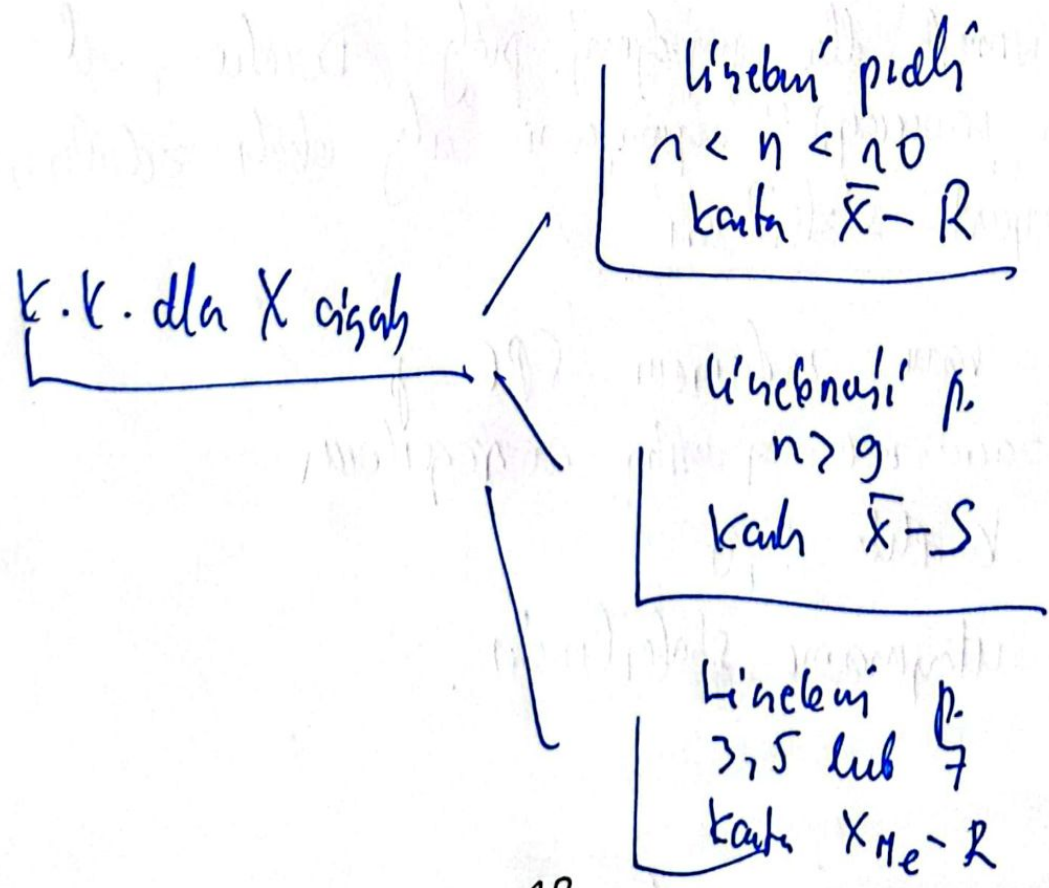 K.K. dla X ciągły
liczebność próbki
1 < n < 10
karta X̄ - R
liczebność p.
n > 9
karta X̄ - S
Liczebność p.
3, 5 lub 7
karta X_Me - R